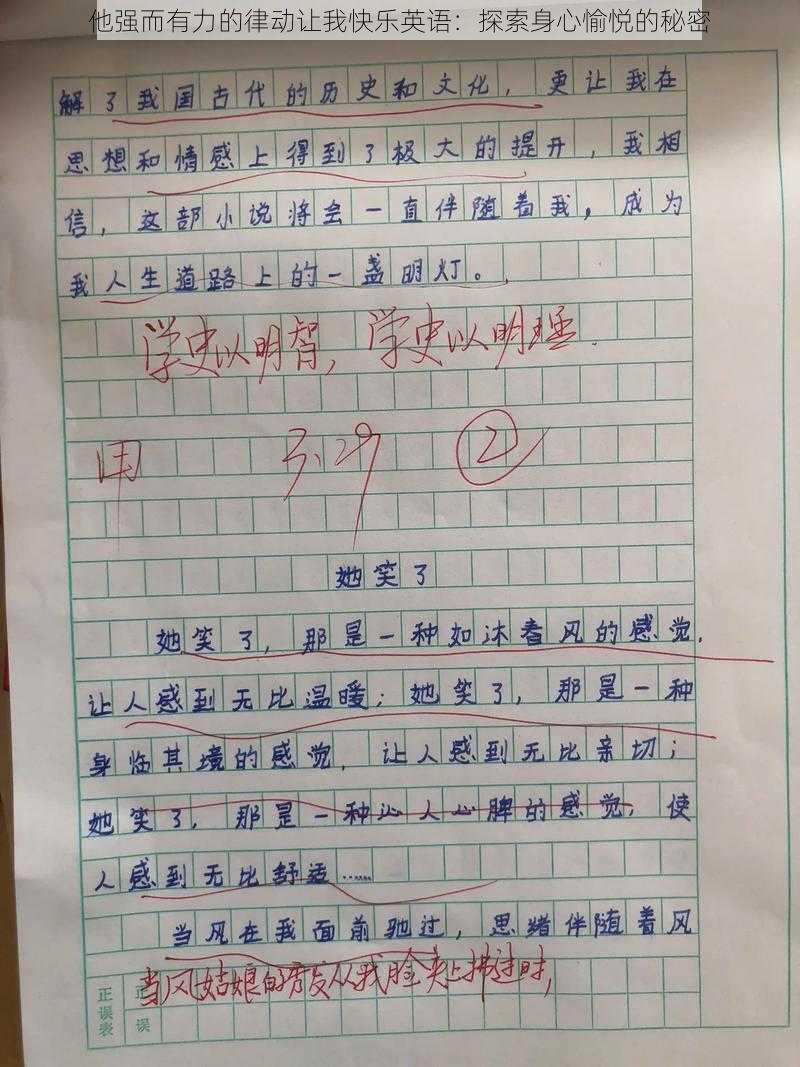 他强而有力的律动让我快乐英语：探索身心愉悦的秘密
解了我国古代的历史和文化，更让我在
思想和情感上得到了极大的提升，我相
信，这部小说将会一直伴随着我，成为
我人生道路上的一盏明灯。
学史以明智，学史以明理.
周 3.29 ②
她笑了
她笑了，那是一种如沐春风的感觉，
让人感到无比温暖；她笑了，那是一种
身临其境的感觉，让人感到无比亲切；
她笑了，那是一种沁人心脾的感觉，使
人感到无比舒适……
当风在我面前驰过，思绪伴随着风
当风姑娘的秀发从我脸夹上拂过时，
正误表 正
误